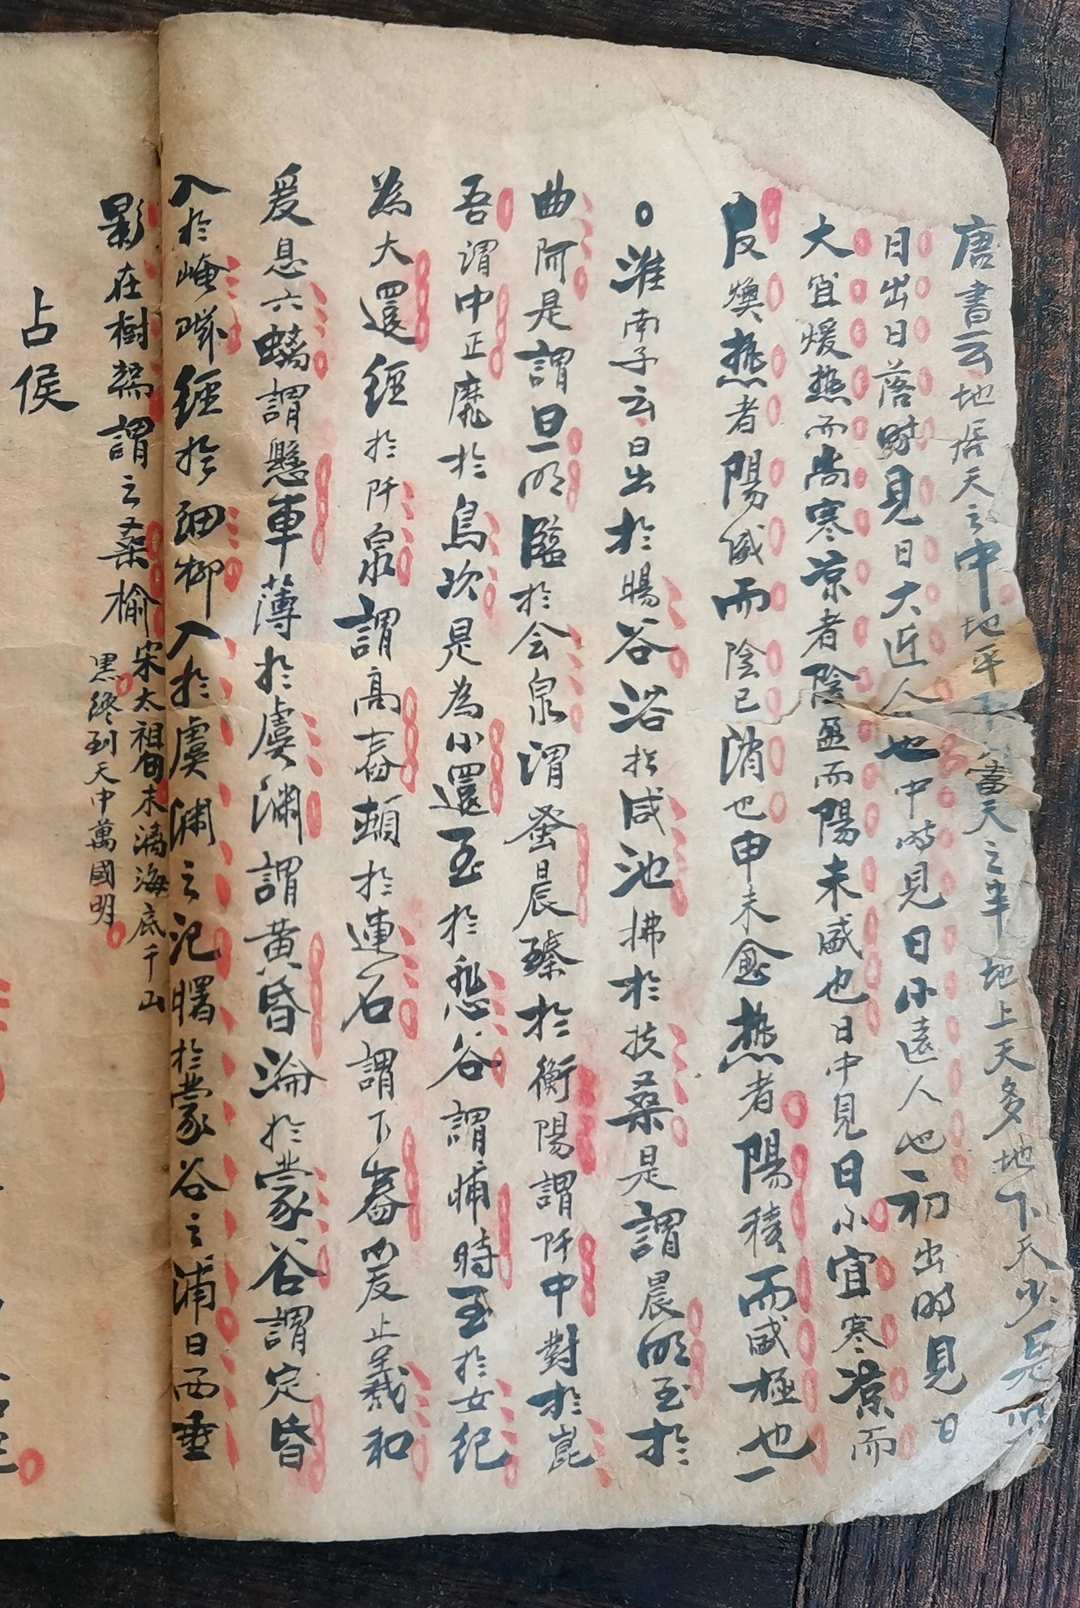 唐書云地居天之中地平不當天之半地上天多地下天少是以
日出日落時見日大近人也中時見日小遠人也初出時見日
大宜煖熱而尚寒凉者陰盈而陽未盛也日中見日小宜寒凉而
反燠熱者陽盛而陰已消也申未愈熱者陽積而盛極也一
○淮南子云日出於暘谷浴於咸池拂於扶桑是謂晨明至於
曲阿是謂旦明臨於会泉謂蚤晨臻於衡陽謂阡中對於崑
吾謂中正靡於鳥次是為小還至於悲谷謂晡時至於女紀
為大還經於阡泉謂高舂頓於連石謂下舂爰止羲和
爰息六螭謂懸車薄於虞淵謂黃昏淪於蒙谷謂定昏
入於崦嵫經於細柳入於虞淵之汜曙於蒙谷之浦日西垂
影在樹謂之桑榆
宋太祖句未漓海底千山
黑纔到天中萬國明
占侯